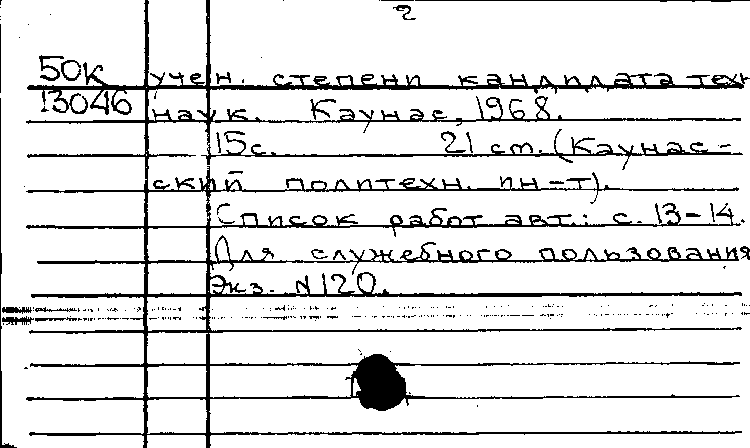 2
50К учен. степени кандидата техн
13046 наук. Каунас, 1968.
15с. 21 см. (Каунас-
ский политехн. ин-т).
Список работ авт.: с. 13-14.
Для служебного пользования
Экз. N120.